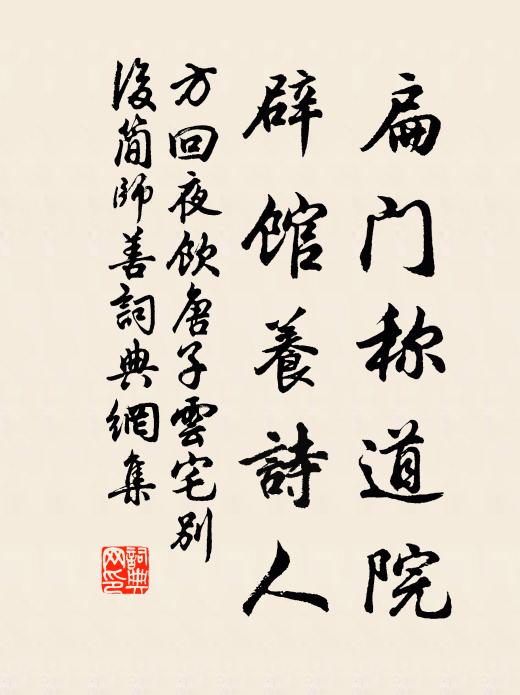 扁门称道院
辟馆養詩人
方回夜飲唐子雲宅別
後簡師善詞典網集
詞典
网印